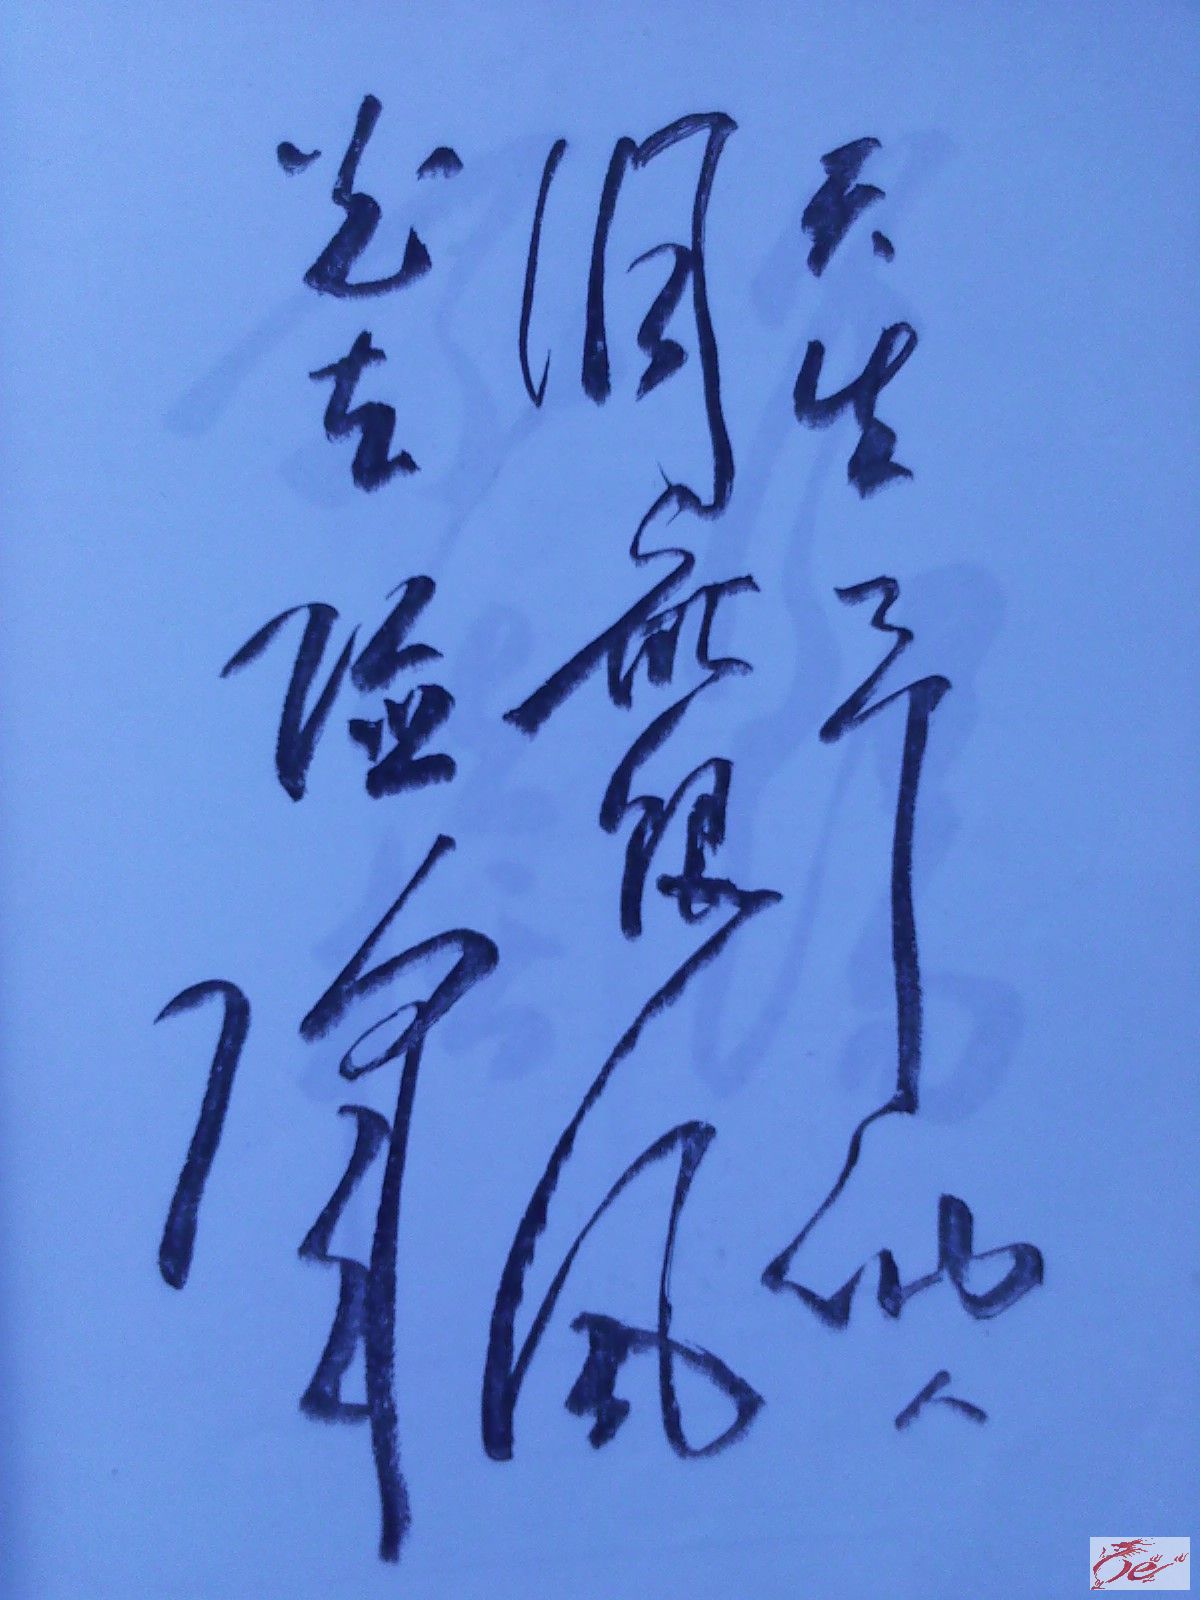 天生一个仙人
洞無限風
光在险峰